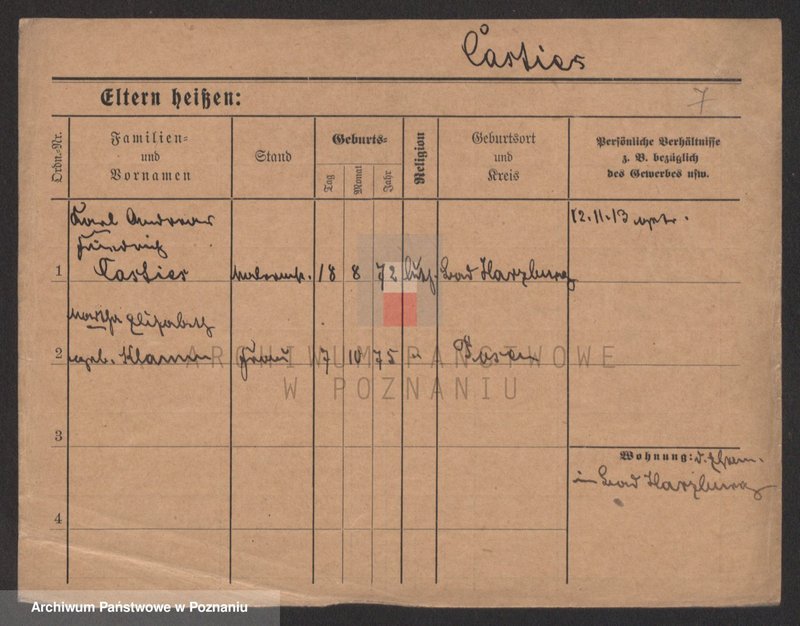 Casties
Eltern heißen:
7
Ordn.-Nr.
Familien-
und
Vornamen
Stand
Geburts-
Tag
Monat
Jahr
Religion
Geburtsort
und
Kreis
Persönliche Verhältnisse
z. B. bezüglich
des Gewerbes usw.
Karl Andreas
Friedrich
1 Casties 18 8 72 luth. Bad Harzburg
12.11.13
Martha Elisabeth
2 geb. Klamm Frau 7 10 75 " Posen
3
4
Wohnung: d. Eltern
in Bad Harzburg
ARCHIWUM PAŃSTWOWE
W POZNANIU
Archiwum Państwowe w Poznaniu